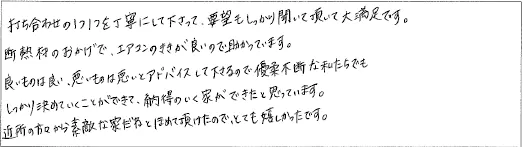 打ち合わせの1つ1つを丁寧にして下さって、要望もしっかり聞いて頂いて大満足です。
断熱材のおかげで、エアコンのききが良いので助かっています。
良いものは良い、悪いものは悪いとアドバイスして下さるので優柔不断な私たちでも
しっかり決めていくことができて、納得のいく家ができたと思っています。
近所の方々から素敵な家だねとほめて頂けたので、とても嬉しかったです。